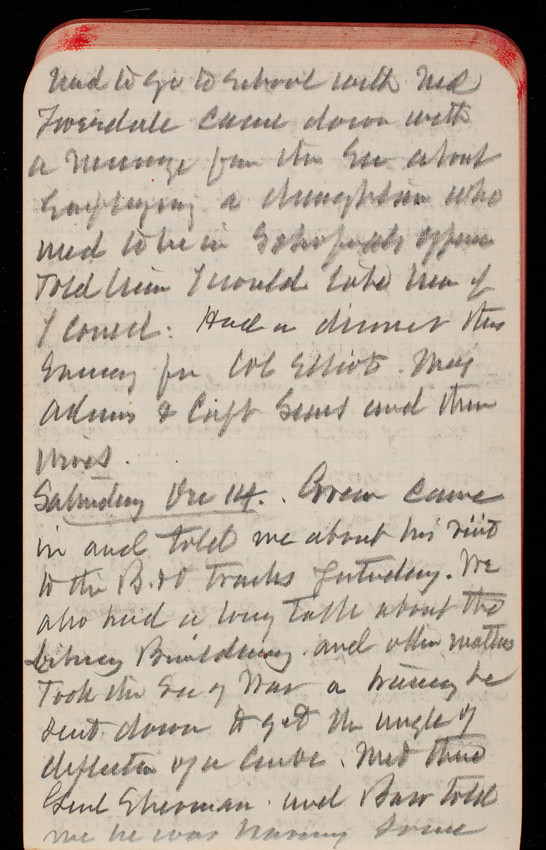 used to go to school with Ned
Truesdale came down with
a message from the Sec about
Employing a draughtsman who
used to be in Schofield's office
Told him I would take him if
I could. Had a dinner this
Evening for Col Elliot. Maj
Adams & Capt and their
wives.
Saturday Dec 14. Green came
in and told me about his visit
to the B.&O tracks yesterday. We
also had a long talk about the
Library Building and other matters
Took the Sec of War a he
sent down to get the angle of
deflection of a curve. Met there
Genl Sherman and told
me he was having some